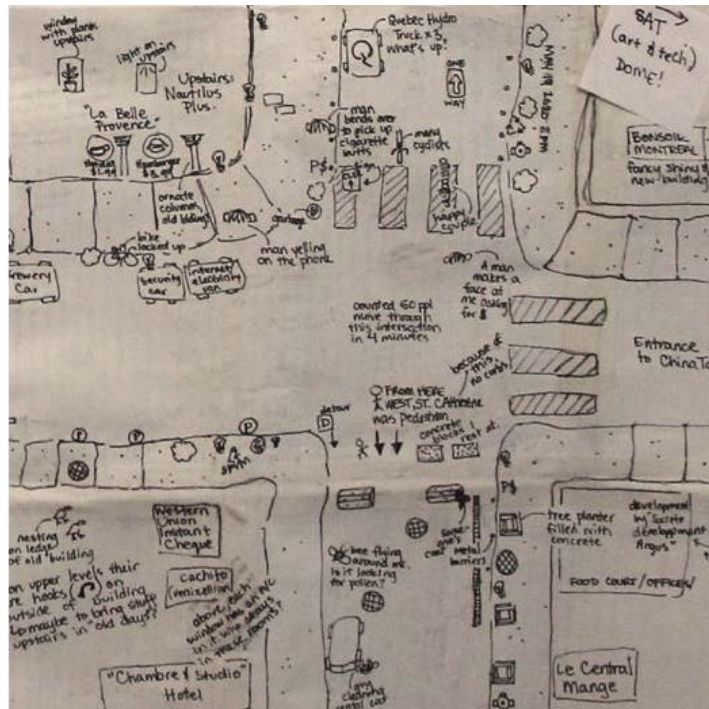 window
with plants
upstairs
light on
upstairs
Upstairs:
Nautilus
Plus.
"La Belle
Provence"
Hamburger
ornate
columns,
old bldng
bike
locked up
Brewery
Car
security
car
internet/
electricity
van
garbage
man yelling
on the phone
Quebec Hydro
Truck x 3,
what's up?
ONE
WAY
man
bends over
to pick up
cigarette
butts
many
cyclists
P$
happy
couple
SAT
(art & tech)
DOME!
BONSOIR
MONTREAL
fancy shiny
new building
A man
makes a
face at
me asking
for $
counted 60 ppl
move through
this intersection
in 4 minutes
because of
this,
no curbs
Entrance
to ChinaTo
FROM HERE
WEST, ST. CATHERINE
was pedestrian
detour
D
concrete
blocks
P
P
SPVM
nesting
on ledge
of old building
on upper levels their
are hooks on
outside of building
maybe to bring stuff
upstairs in "old days"?
Western
Union
Instant
Cheque
cachito
(venezuelian)
above each
window has an A/C
in it
in these rooms?
"Chambre & Studio"
Hotel
bee flying
around me.
Is it looking
for pollen?
metal
barriers
P$
tree planter
filled with
concrete
development
by "Societe
developpment
Angus"
FOOD COURT/OFFICES/
Le Central
Mange
guy
cleaning
rental car